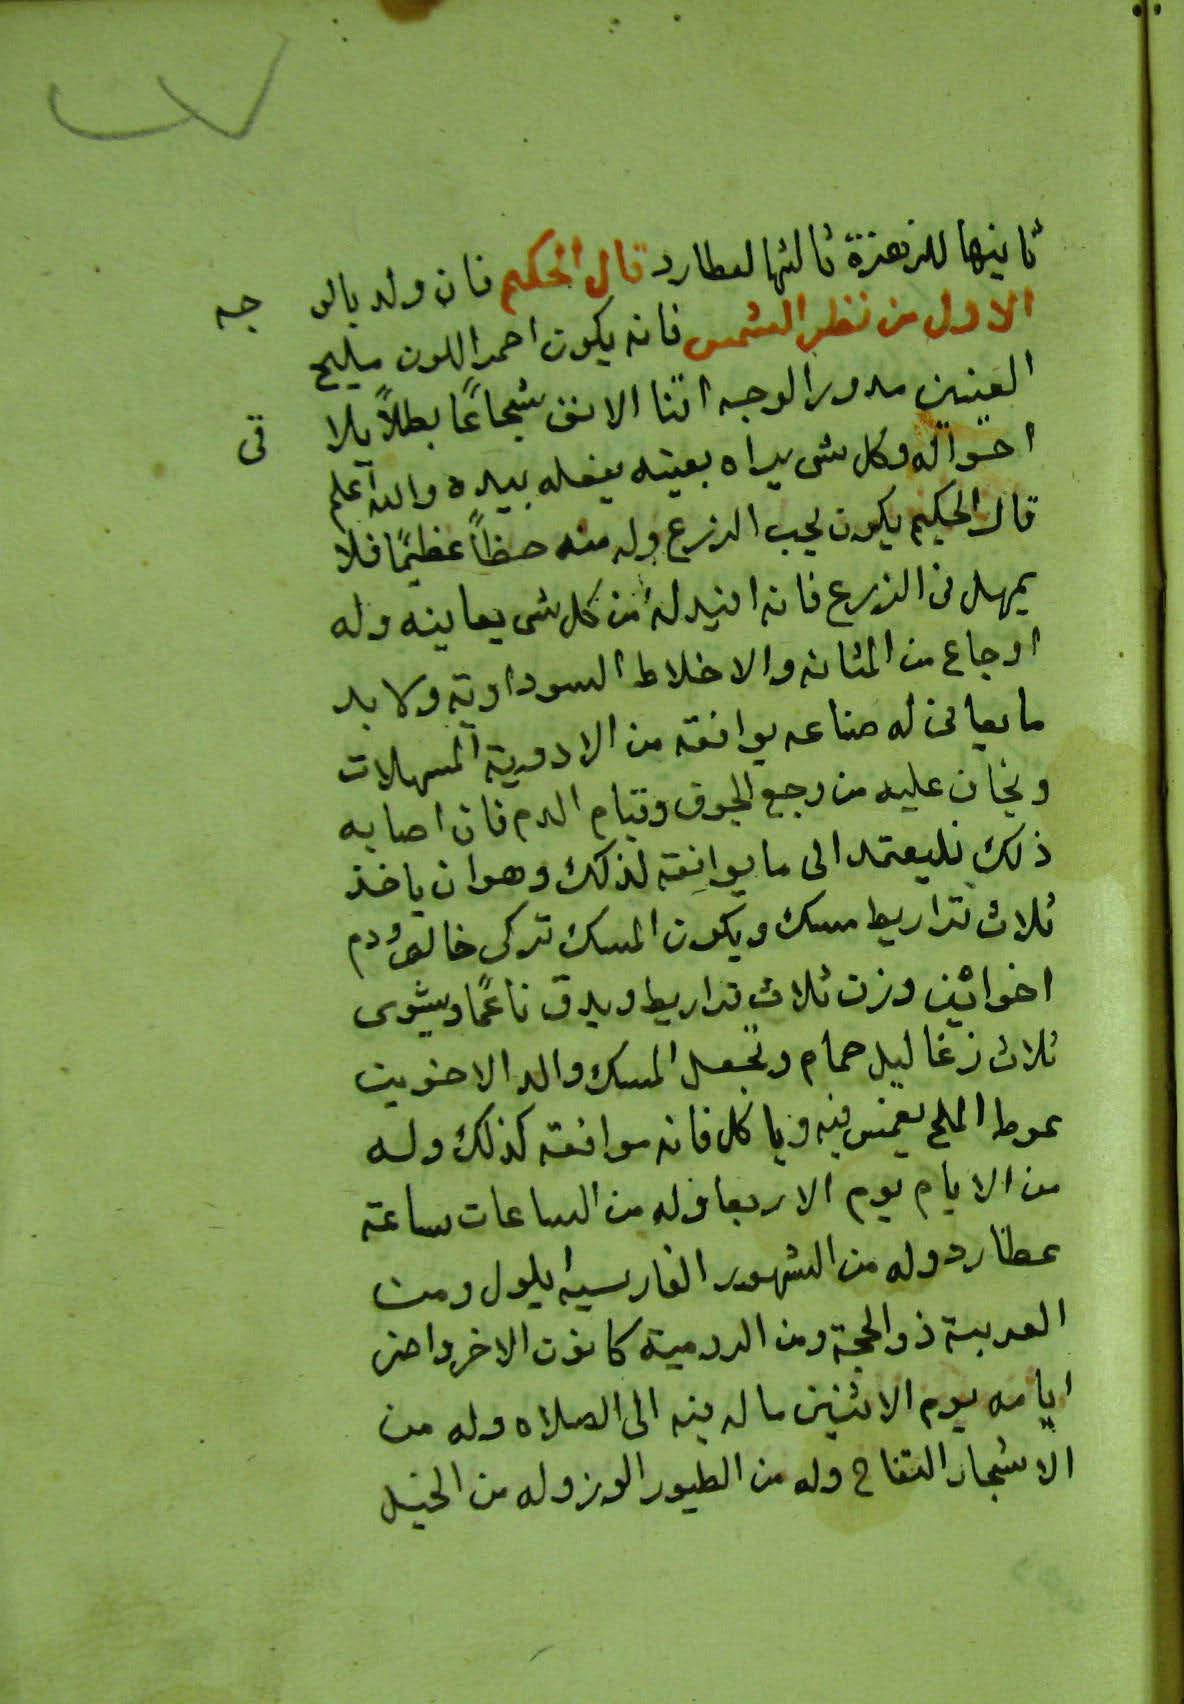 ثانيها للزهزة ثالثها لعطارد قال الحكيم فان ولد بالو جه
الاول من نظر الشمس فانه يكون احمر اللون مليح
العينين مدور الوجه اقنا الانف شجاعًا بطلاً يلا قى
احواله وكل شى يراه بعينه يفعله بيده والله اعلم
قال الحكيم يكون يحب الزرع وله منه حظاً عظيمًا فلا
يمهل فى الزرع فانه افيد له من كل شى يعاينه وله
اوجاع من المثانه والاخلاط السوداويه ولا بد
ما يعانى له صناعه يوافقه من الادوية المسهلات
ويخاف عليه من وجع الجوف وقيام الدم فان اصابه
ذلك فليعتمد الى ما يوافقه لذلك وهو ان ياخذ
ثلاث قراريط مسك ويكون المسك تركى خالص ودم
اخواتين وزن ثلاث قراريط ويدق ناعمًا ويشوى
ثلاث زغاليل حمام وتجعل المسك والد الاخوين
عوط الملح يغمس فيه وياكل فانه موافقه كذلك وله
من الايام يوم الاربعا وله من الساعات ساعة
عطارد وله من الشهور الفارسيه ايلول ومن
العربية ذو الحجة ومن الرومية كانون الاخر واضر
ايامه يوم الاثنين ماله فيه الى الصلاه وله من
الاشجار التفاح وله من الطيور الوز وله من الخيل